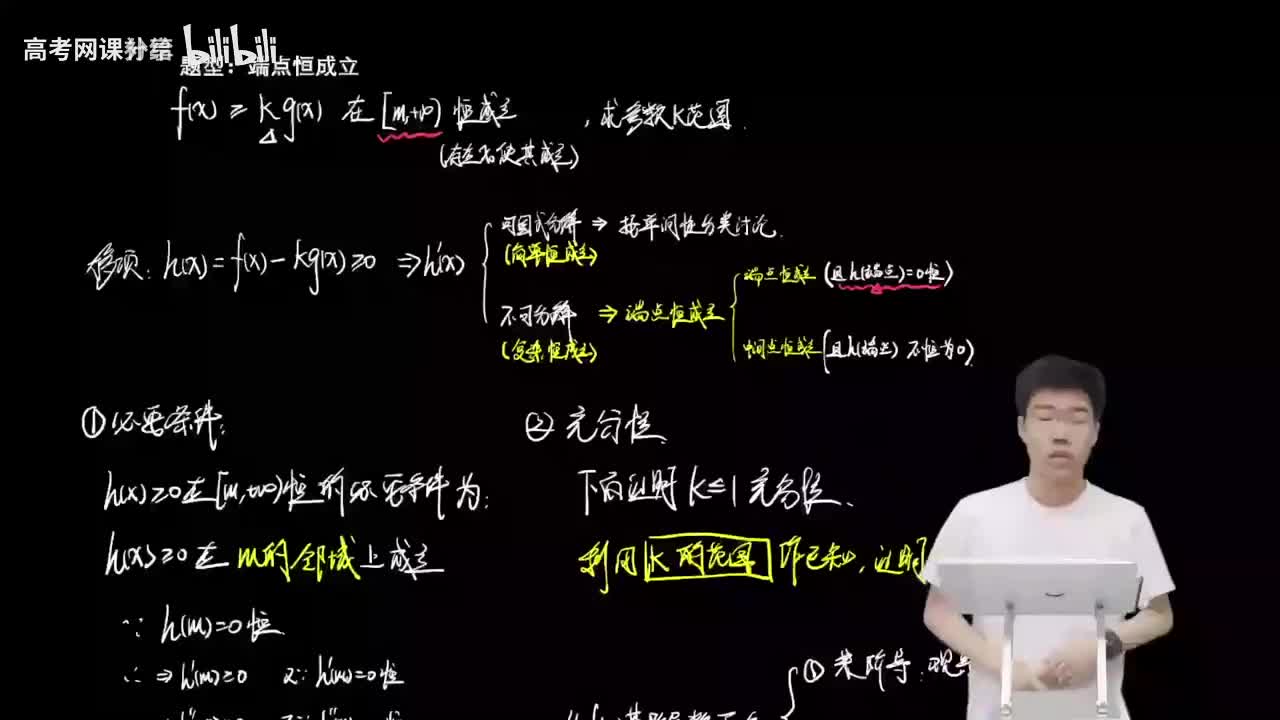 高考网课补给 bilibili
题型：端点恒成立
f(x) ≥ k g(x) 在 [m,+∞) 恒成立，求参数k范围.
(存在x0使其成立)
移项: h(x) = f(x) - kg(x) ≥ 0 ⇒ h'(x)
可因式分解 ⇒ 按单调性分类讨论.
(简单恒成立)
不可分解 ⇒ 端点恒成立
(复杂恒成立)
端点恒成立 (且h(端点)=0恒)
中间点恒成立 (且h(端点) 不恒为0)
① 必要条件:
h(x)≥0在[m,+∞)恒的必要条件为:
h(x)≥0在 m的邻域上成立
∵ h(m)=0恒.
∴ ⇒ h'(m)≥0 又∵ h'(m)=0恒
② 充分性.
下面证明 k≤1 充分性.
利用 k的范围 即已知, 证明
① 求阶导: